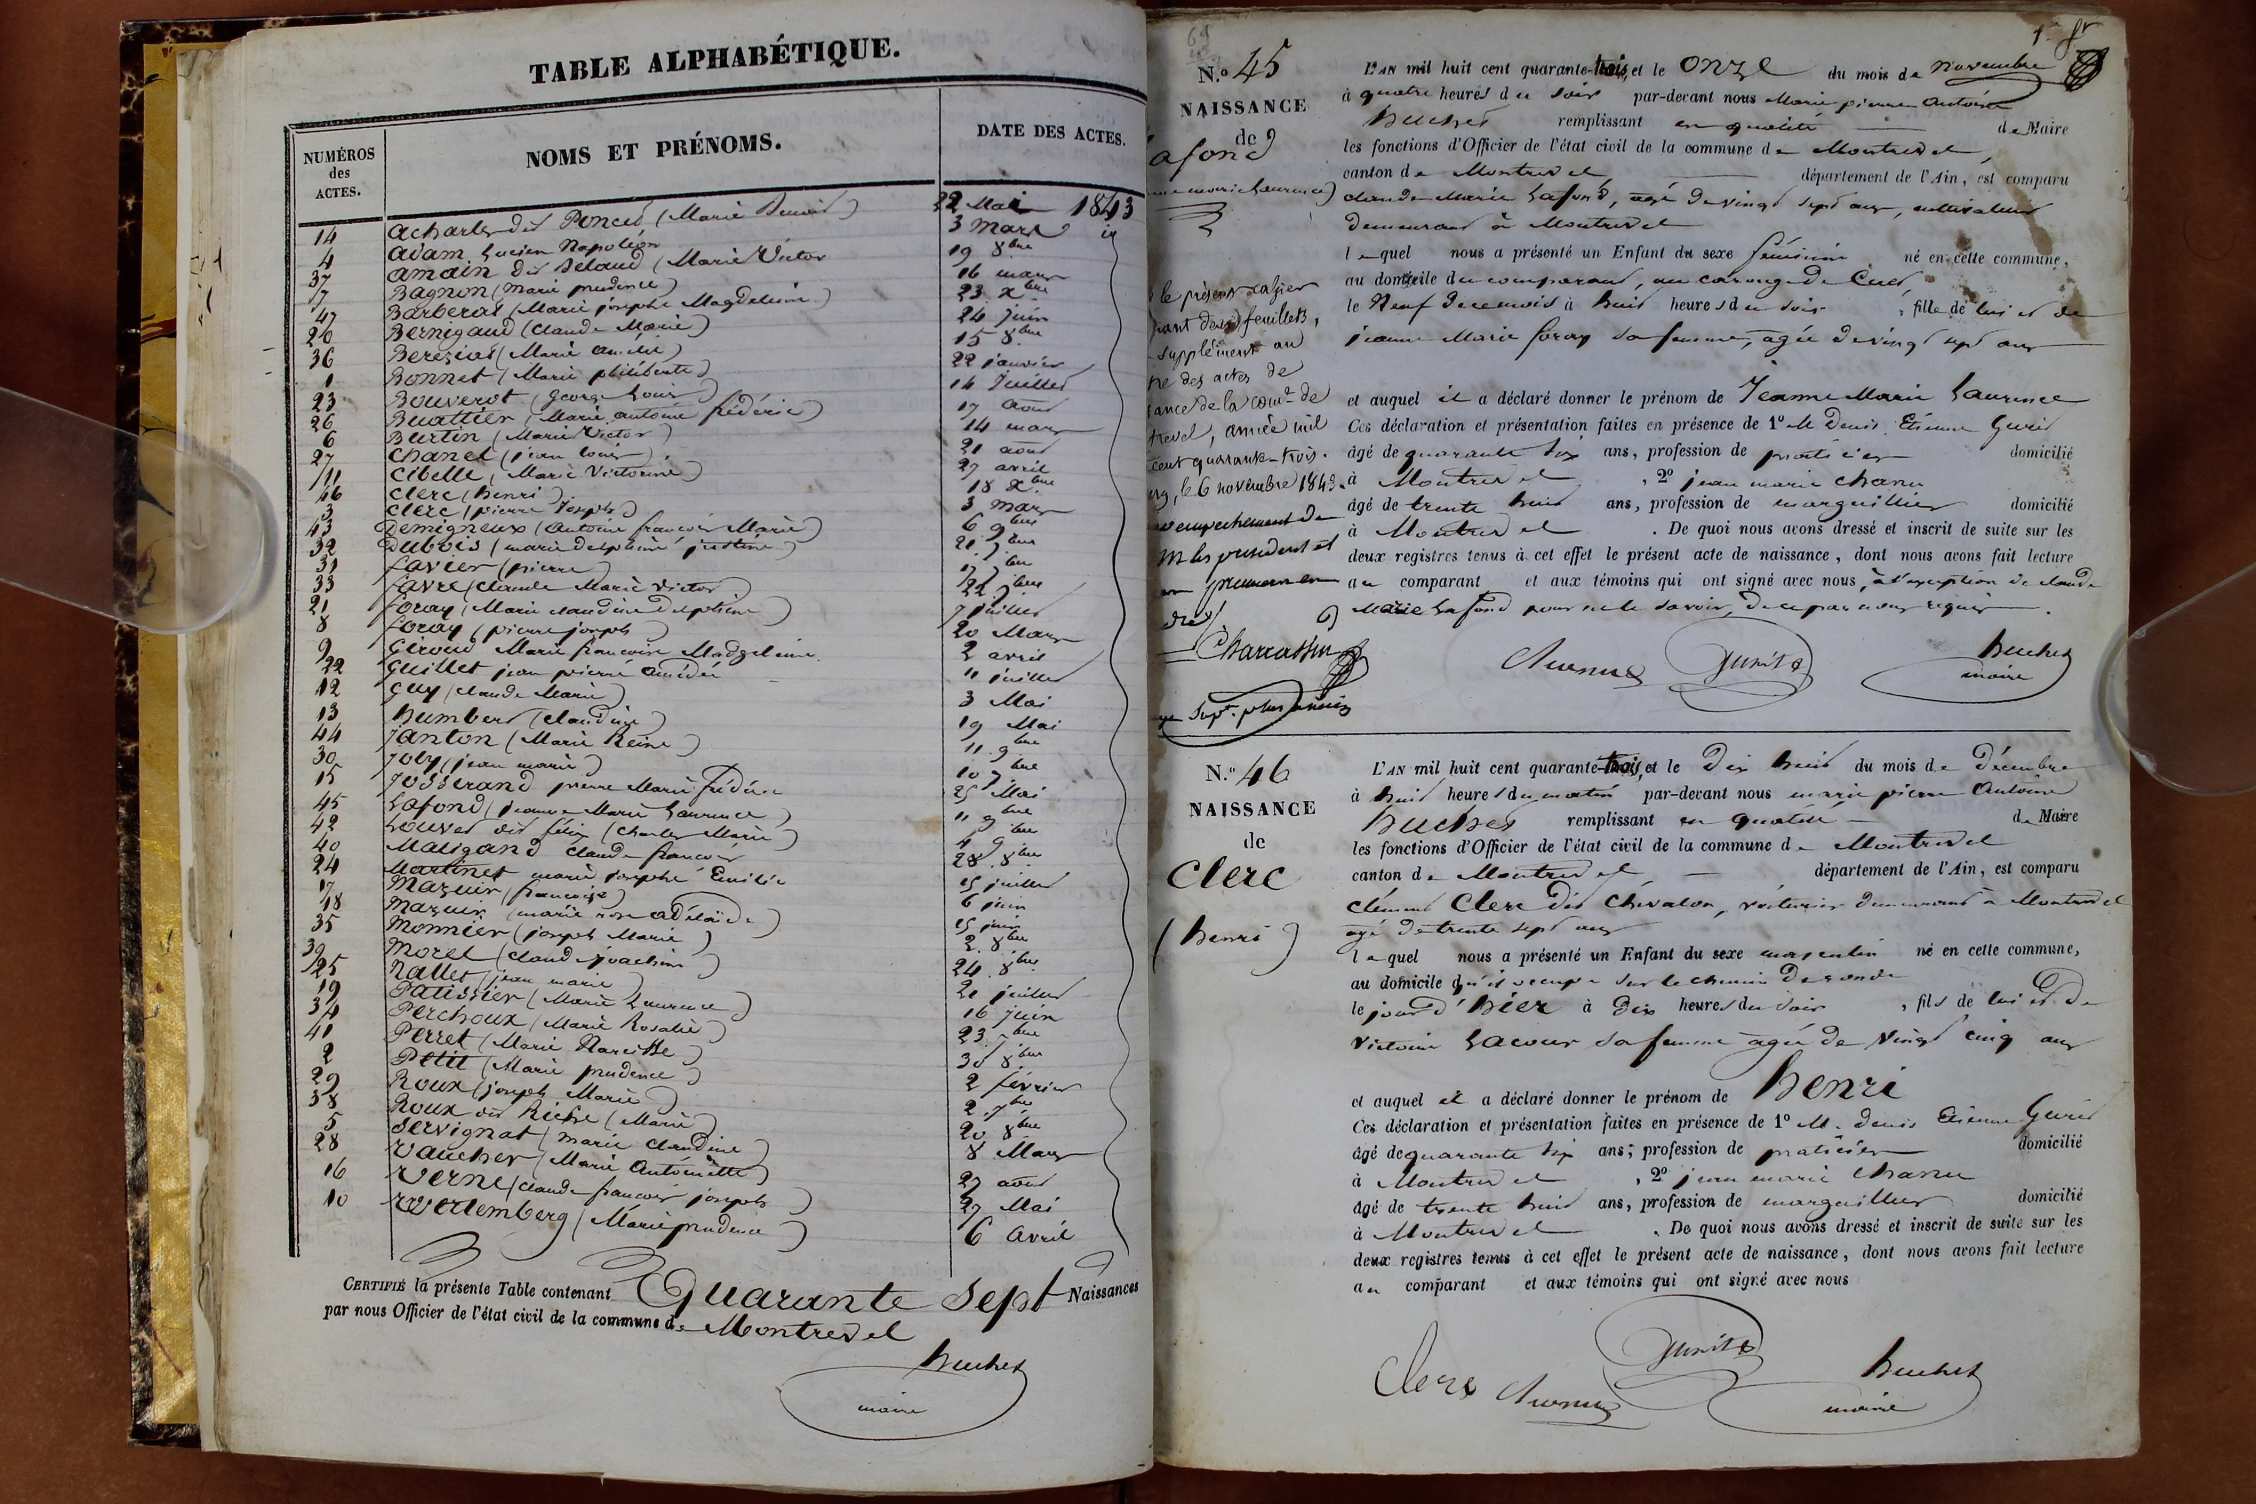 TABLE ALPHABÉTIQUE.
NUMÉROS des ACTES.
NOMS ET PRÉNOMS.
DATE DES ACTES.
14 Acharles dit Poncet (Marie Benoit) 22 Mai 1843
4 Adam Lucien Napoléon 3 Mars id
37 Amain dit Belaud (Marie Victor 19 8bre
7 Bagnon (Marie prudence) 16 mars
47 Barberat (Marie josephe Magdeleine) 23 Xbre
20 Bernigaud (Claude Marie) 24 Juin
36 Bereziat (Marie Amélie) 15 8bre
1 Bonnet (Marie philiberte) 22 janvier
23 Bouverot (George Louis) 14 Juillet
26 Buattier (Marie Antoine frédéric) 17 août
6 Burtin (Marie Victor) 14 mars
27 Chanel (jean louis) 21 août
11 Cibelle (Marie Victorine) 27 avril
46 Clerc (henri) 18 Xbre
3 Clerc (pierre joseph) 3 mars
43 Demigneux (Antoine françois Marie) 6 9bre
32 Dubois (marie delphine justine) 21 7bre
31 favier (pierre) 17 7bre
33 favre (claude Marie Victor) 22 7bre
21 foray (Marie claudine delphine) 7 juillet
8 foray (pierre joseph) 20 Mars
9 Giroud Marie françoise Madgeleine 2 avril
22 Guillet jean pierre Amédée 11 juillet
12 Guy (claude Marie) 3 Mai
13 humbert (claudine) 19 Mai
44 Janton (Marie Reine) 11 9bre
30 Joly (jean marie) 10 7bre
15 Josserand pierre Marie frédéric 25 Mai
45 Lafond (jeanne Marie Laurence) 11 9bre
42 Louvet dit félix (Charles Marie) 4 9bre
40 Maligand Claude françois 28 8bre
24 Martinet marie josephe Emilie 15 juillet
17 Mazuir (françoise) 6 juin
18 Mazuir (marie rose adélaïde) 15 juin
35 Monnier (joseph Marie) 2 8bre
39 Morel (claude joachim) 24 8bre
25 Nallet (jean marie) 21 juillet
19 Patissier (Marie Laurence) 16 Juin
34 Perchoux (Marie Rosalie) 23 7bre
41 Perret (Marie Narcisse) 30 8bre
2 Petit (Marie prudence) 2 février
29 Roux (joseph Marie) 2 7bre
38 Roux dit Riche (Marie) 20 8bre
5 Servignat (marie claudine) 8 Mars
28 Vaucher (Marie Antoinette) 27 août
16 Verne (claude françois joseph) 27 Mai
10 Wertemberg (Marie prudence) 6 avril
CERTIFIÉ la présente Table contenant Quarante Sept Naissances
par nous Officier de l'état civil de la commune de Montrevel
huchet
maire
N.º 45
NAISSANCE
de
afond
marie Laurence)
le présent cahier
deux feuillets,
supplément au
des actes de
de la comne de
, année mil
cent quarante-trois.
, le 6 novembre 1843.
empechement de
président et
premier
Charrassin
L'AN mil huit cent quarante-trois, et le onze du mois de novembre
à quatre heures du soir par-devant nous Marie pierre Antoine
huchet remplissant en qualité de Maire
les fonctions d'Officier de l'état civil de la commune de Montrevel,
canton de Montrevel département de l'Ain, est comparu
claude Marie Lafond, agé de vingt sept ans, cultivateur
demeurant à Montrevel
lequel nous a présenté un Enfant du sexe féminin né en cette commune,
au domicile du comparant, au carouge de Cuet,
le Neuf de ce mois à huit heures du soir, fille de lui et de
jeanne Marie foray sa femme, agée de vingt sept ans
et auquel il a déclaré donner le prénom de Jeanne Marie Laurence
Ces déclaration et présentation faites en présence de 1º M Denis Etienne Gurit
âgé de quarante six ans, profession de praticien domicilié
à Montrevel, 2º jean marie chanu
âgé de trente huit ans, profession de marguillier domicilié
à Montrevel. De quoi nous avons dressé et inscrit de suite sur les
deux registres tenus à cet effet le présent acte de naissance, dont nous avons fait lecture
au comparant et aux témoins qui ont signé avec nous, à l'exception de claude
Marie Lafond pour ne le savoir, de ce par nous requis.
huchet
maire
N.º 46
NAISSANCE
de
Clerc
(henri)
L'AN mil huit cent quarante-trois, et le Dix huit du mois de Décembre
à huit heures du matin par-devant nous marie pierre Antoine
huchet remplissant en qualité de Maire
les fonctions d'Officier de l'état civil de la commune de Montrevel
canton de Montrevel département de l'Ain, est comparu
clément Clerc dit Chevalon, voiturier demeurant à Montrevel
agé de trente sept ans
lequel nous a présenté un Enfant du sexe masculin né en cette commune,
au domicile qu'il occupe sur le chemin de ronde
le jour d'hier à Dix heures du soir, fils de lui et de
Victoire Lacour sa femme agée de vingt cinq ans
et auquel il a déclaré donner le prénom de henri
Ces déclaration et présentation faites en présence de 1º M. Denis Etienne Gurit
âgé de quarante six ans, profession de praticien domicilié
à Montrevel, 2º jean marie chanu
âgé de trente huit ans, profession de marguillier domicilié
à Montrevel. De quoi nous avons dressé et inscrit de suite sur les
deux registres tenus à cet effet le présent acte de naissance, dont nous avons fait lecture
au comparant et aux témoins qui ont signé avec nous
Clerc
huchet
maire